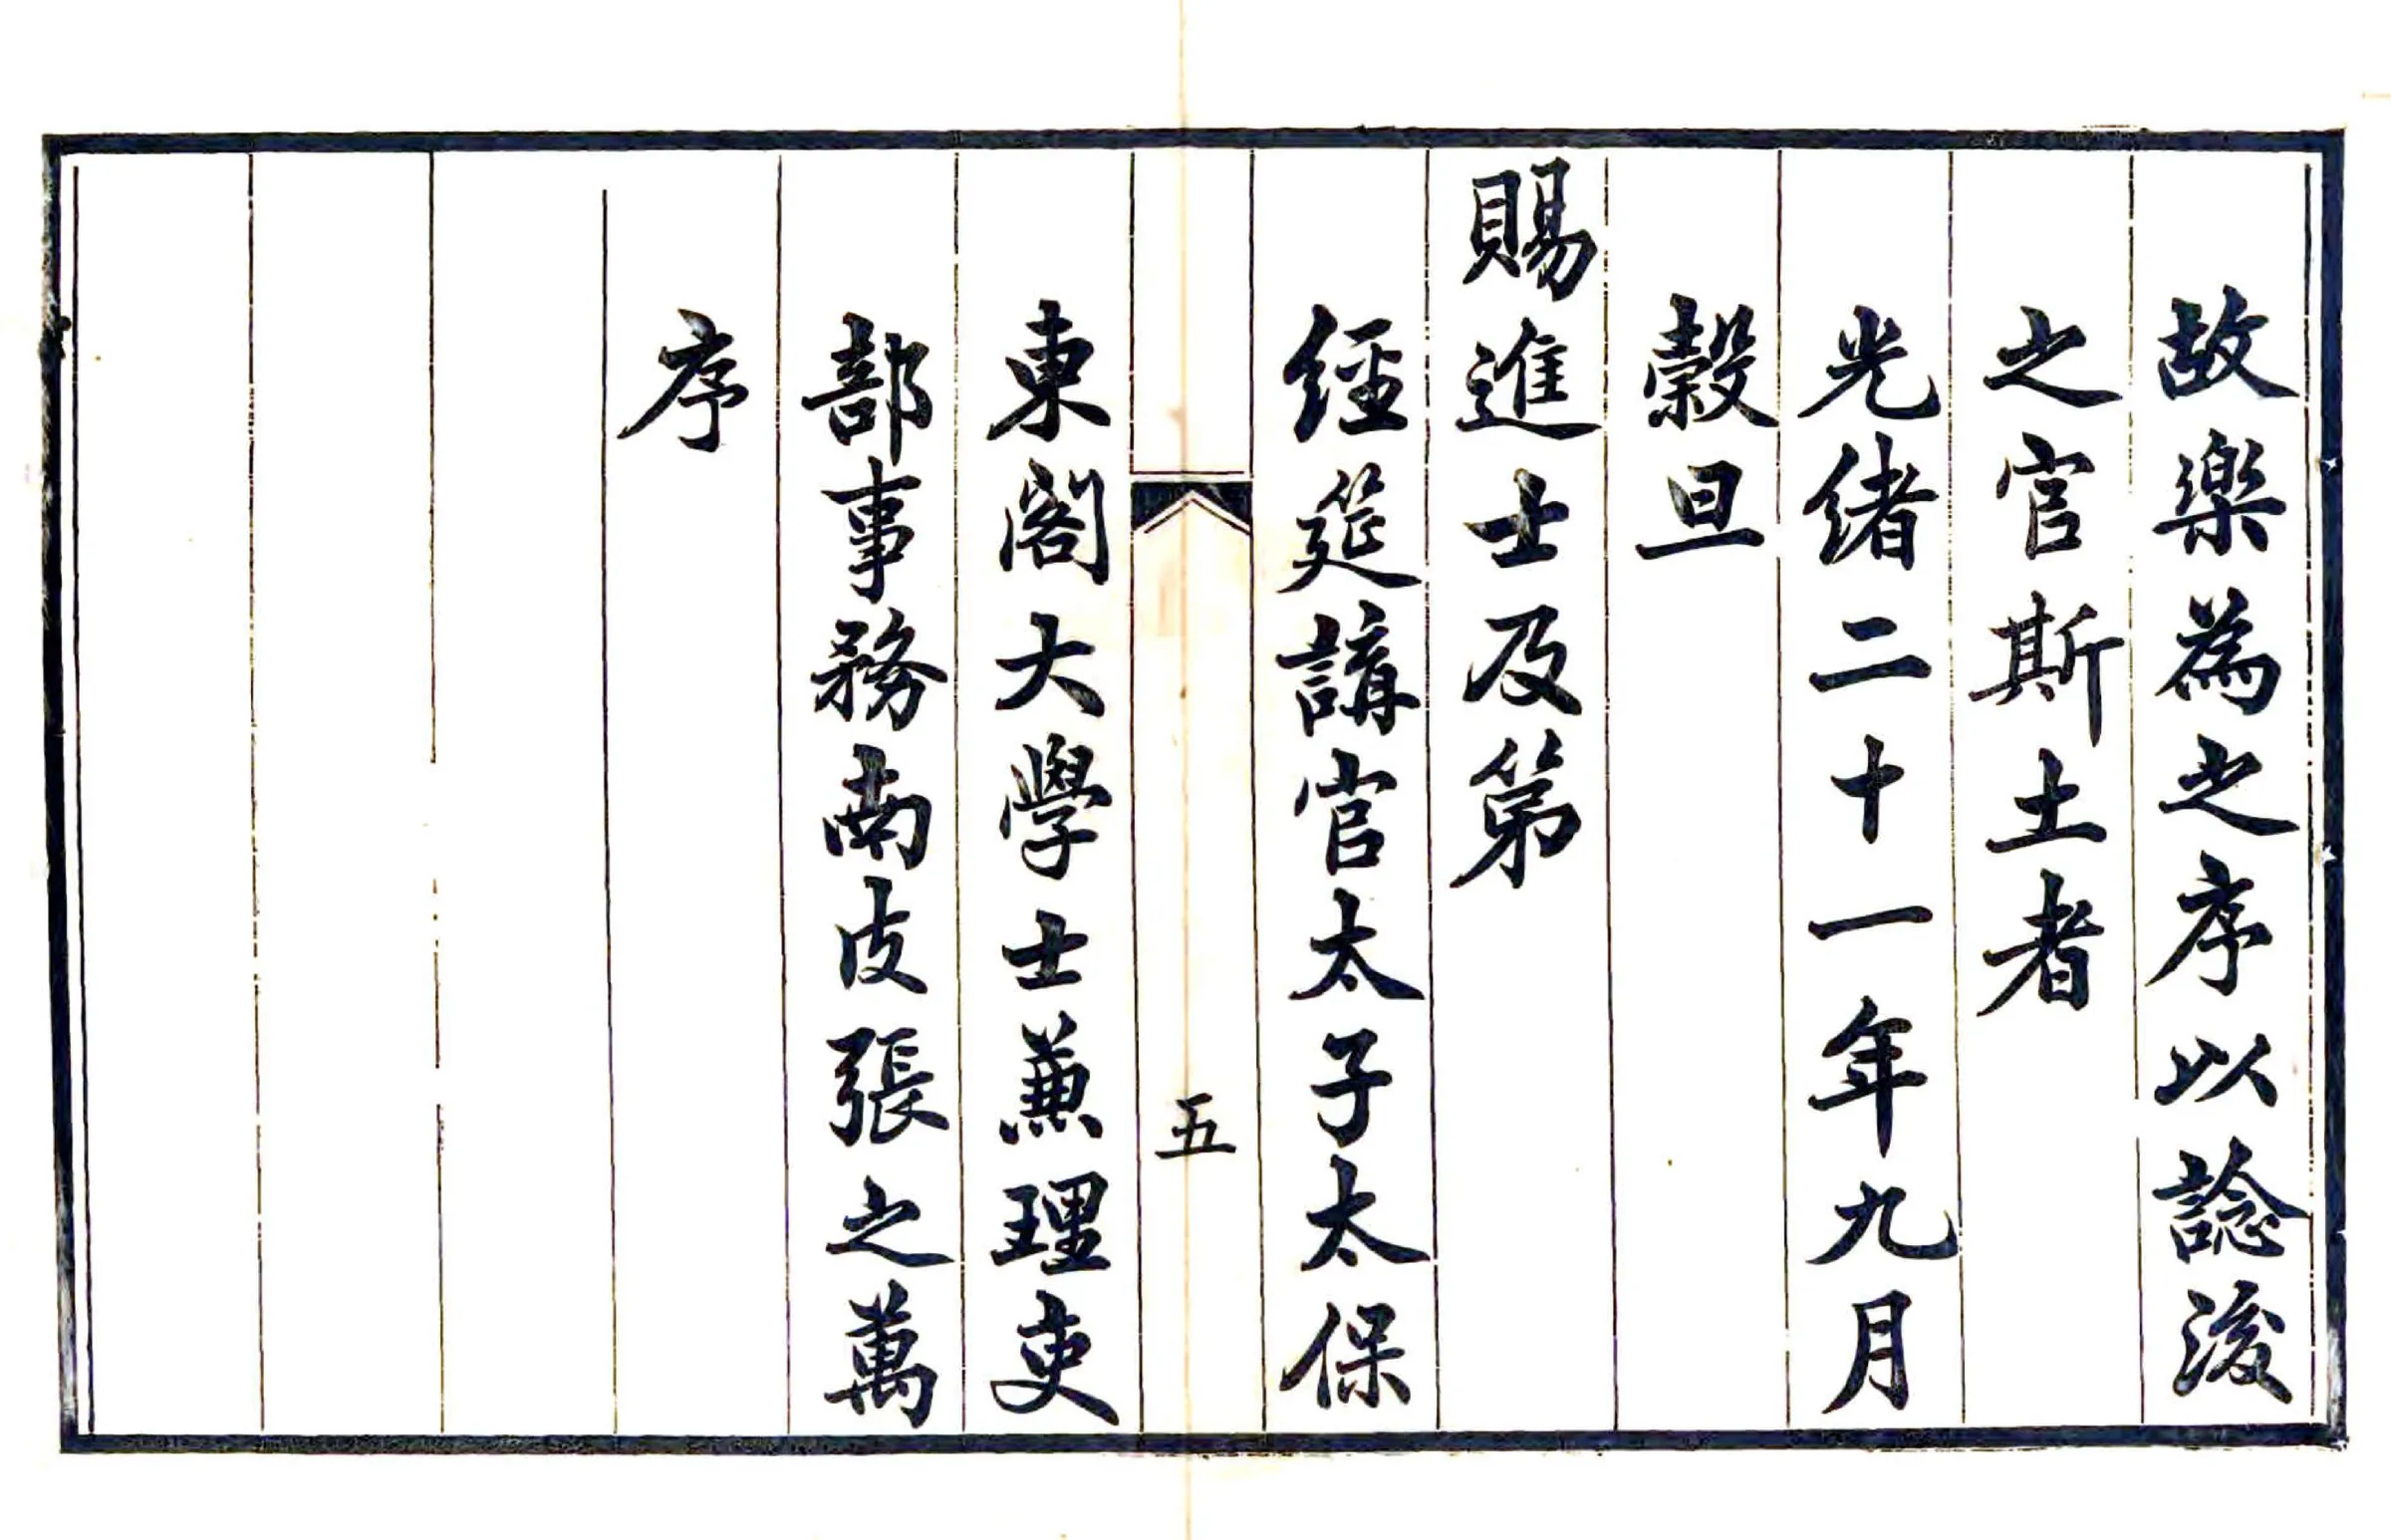 故樂為之序以諗後
之官斯土者
光緒二十一年九月
穀旦
賜進士及第
經筵講官太子太保
五
東閣大學士兼理吏
部事務南皮張之萬
序